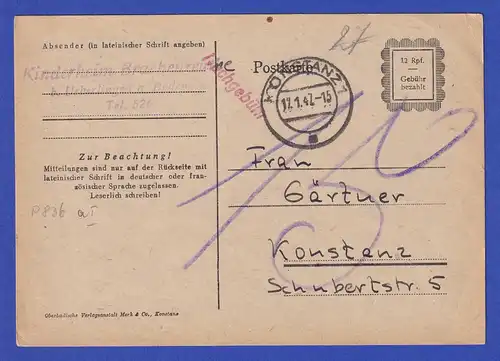 Absender (in lateinischer Schrift angeben)
Kinderheim
b. Ueberlingen a. Boden
Tel. 521
Zur Beachtung!
Mitteilungen sind nur auf der Rückseite mit
lateinischer Schrift in deutscher oder fran-
zösischer Sprache zugelassen.
Leserlich schreiben!
P836
Oberbadische Verlagsanstalt Merk & Co., Konstanz
Postkarte
Nachgebühr
KONSTANZ 1
17.1.47.-15
12 Rpf.
Gebühr
bezahlt
Frau
Gärtner
Konstanz
Schubertstr. 5